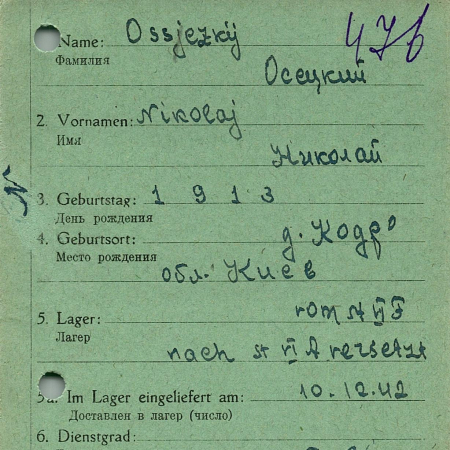 Name: Ossjezkij
476
Фамилия
Осецкий
2. Vornamen: Nikolaj
Имя
Николай
N
3. Geburtstag: 1 9 1 3
День рождения
4. Geburtsort: д. Кодро
Место рождения
обл. Киев
5. Lager: VI F
Лагерь
nach st VI A versetzt
5a. Im Lager eingeliefert am: 10.12.42
Доставлен в лагерь (число)
6. Dienstgrad: